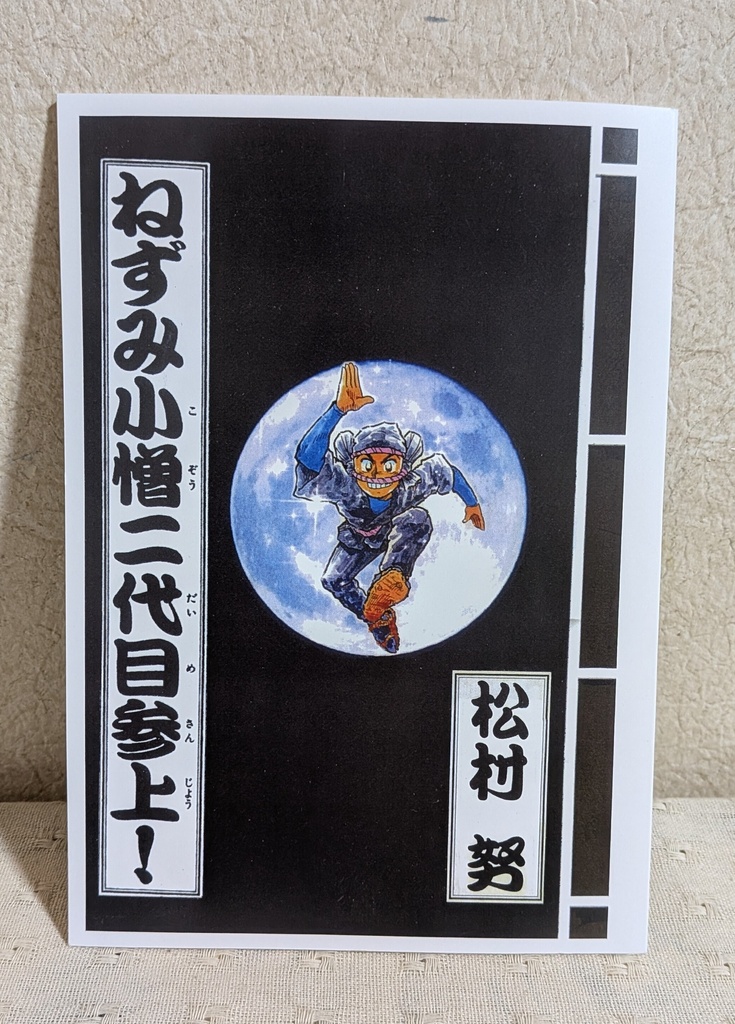 ねずみ小憎二代目参上!
こ
ぞう
だい
め
さん
じょう
松村 努